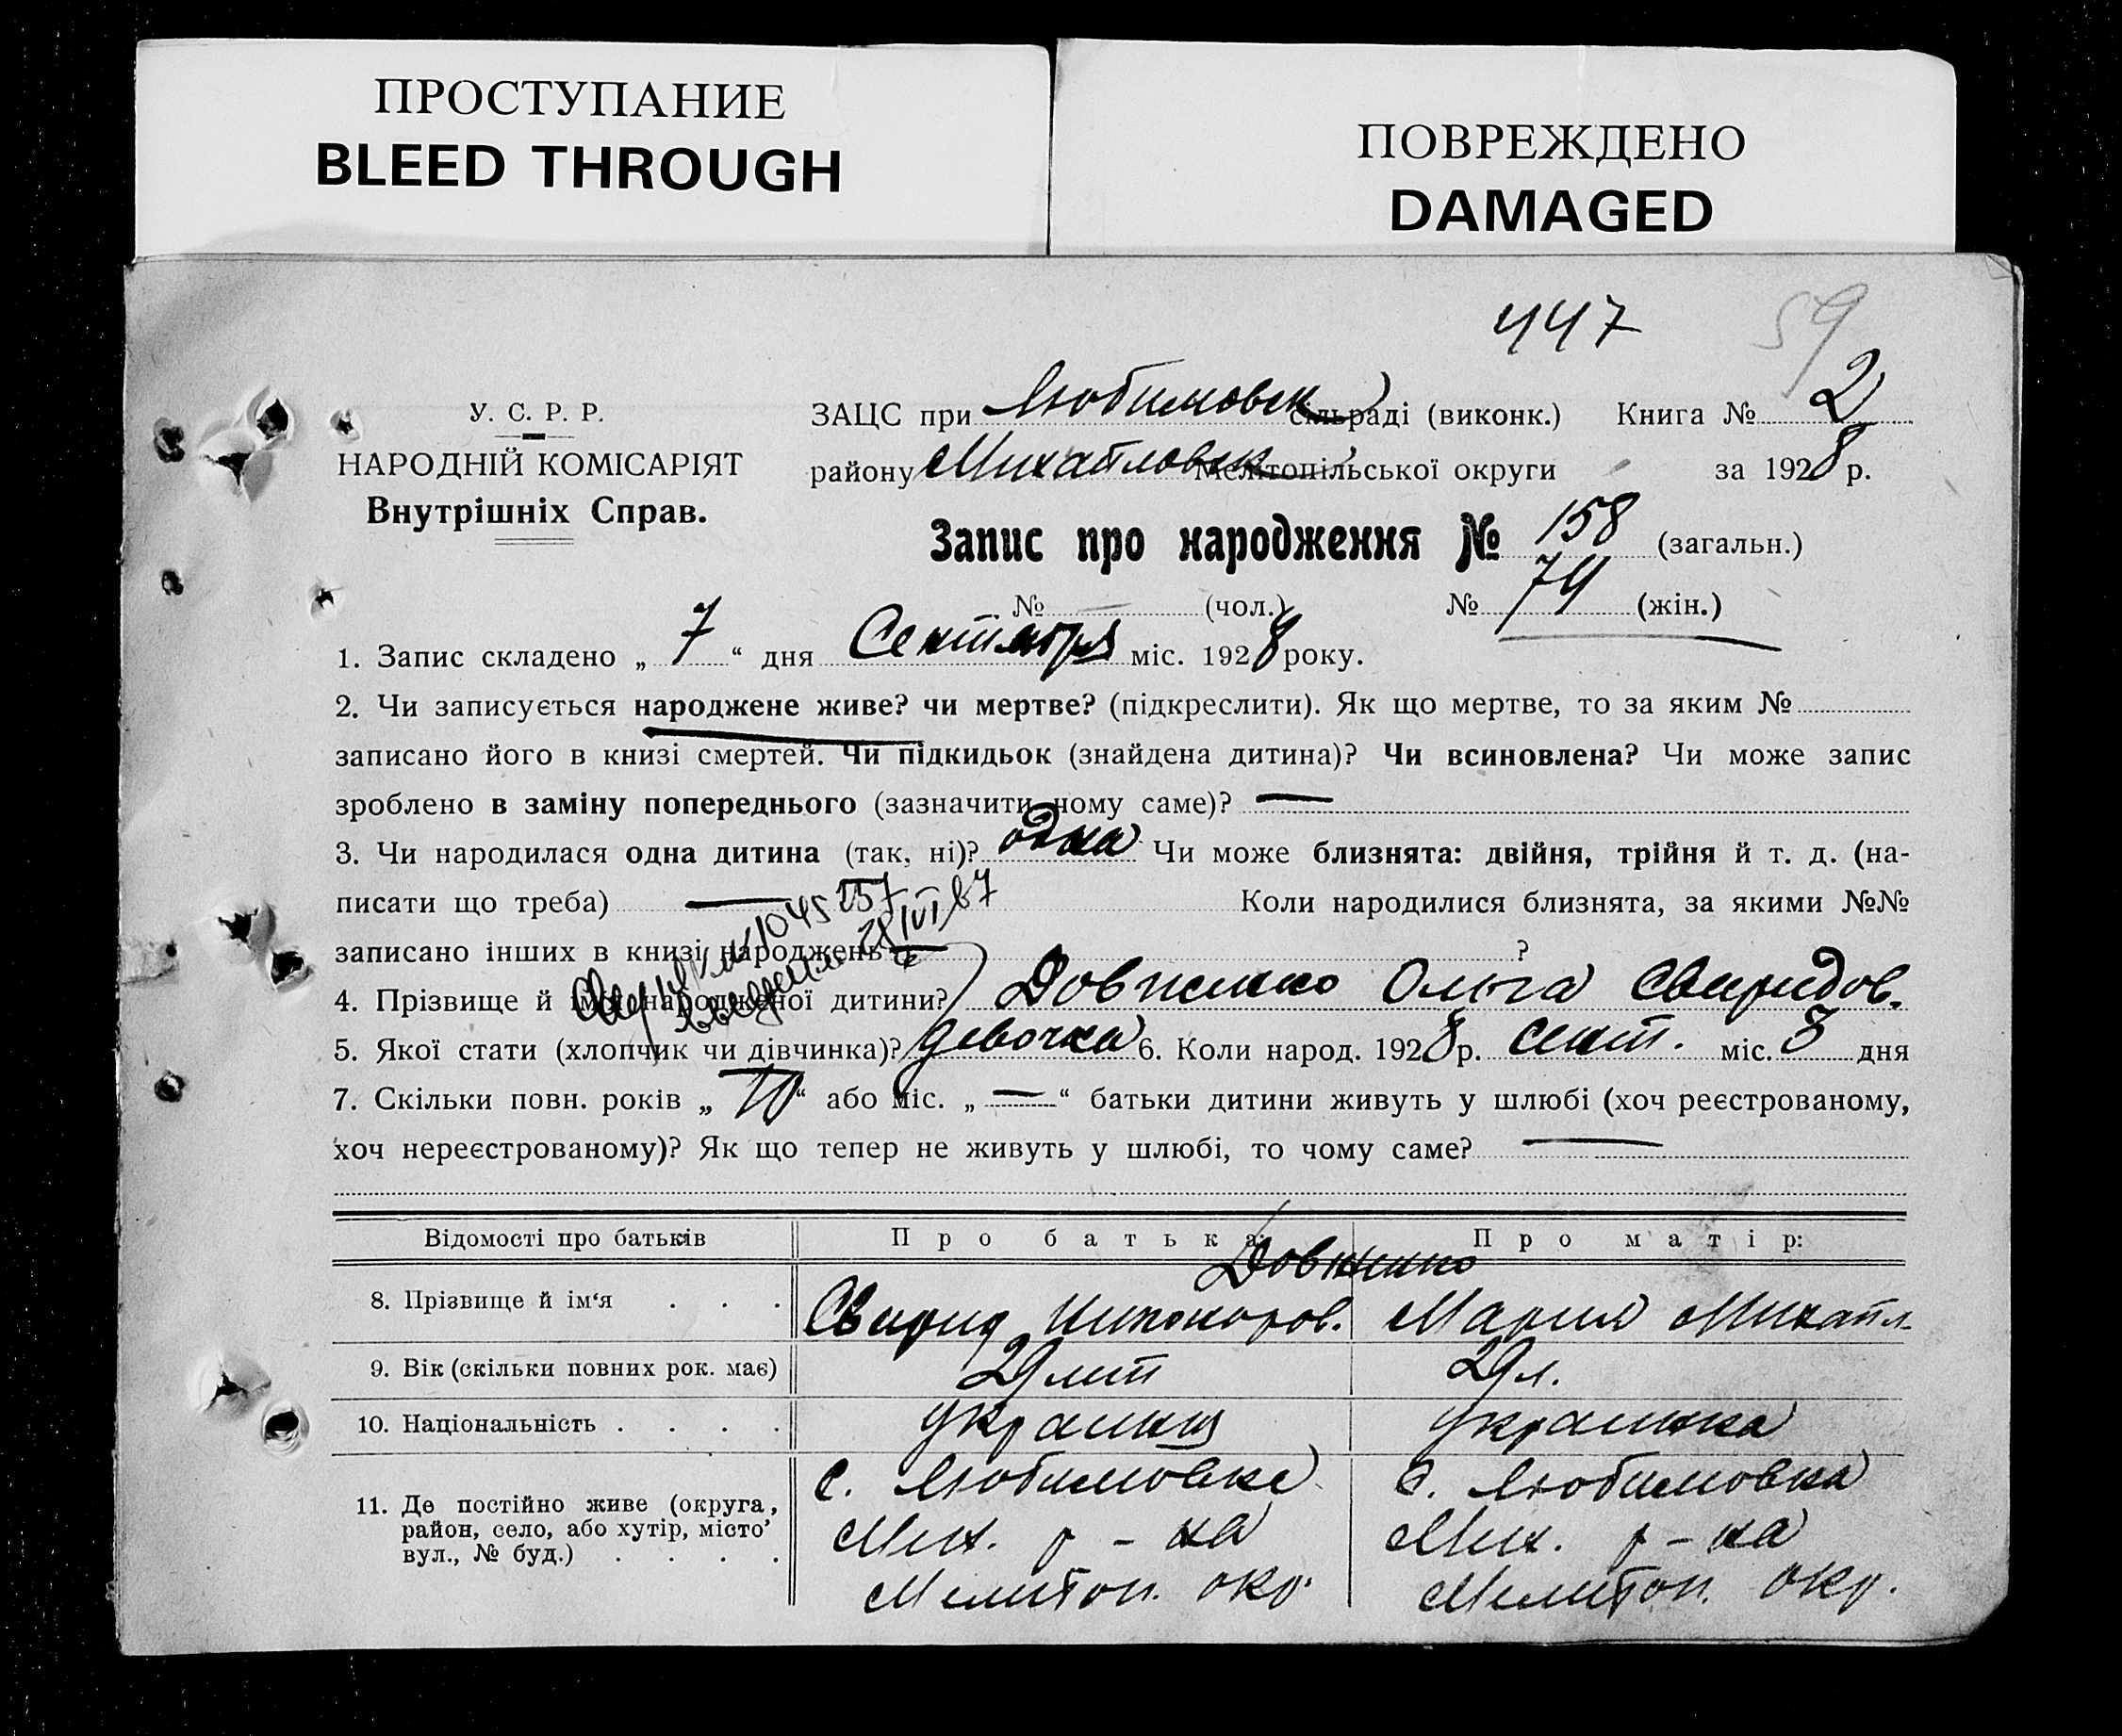 ПРОСТУПАНИЕ
BLEED THROUGH
ПОВРЕЖДЕНО
DAMAGED
447 59
У. С. Р. Р.
НАРОДНІЙ КОМІСАРІЯТ
Внутрішніх Справ.
ЗАЦС при Любимовск сільраді (виконк.) Книга № 2
району Михайловск Мелітопільської округи за 1928 р.
Запис про народження № 158 (загальн.)
№ — (чол.) № 79 (жін.)
1. Запис складено „ 7 “ дня Сентября міс. 1928 року.
2. Чи записується народжене живе? чи мертве? (підкреслити). Як що мертве, то за яким №
записано його в книзі смертей. Чи підкидьок (знайдена дитина)? Чи всиновлена? Чи може запис
зроблено в заміну попереднього (зазначити чому саме)? —
3. Чи народилася одна дитина (так, ні)? одна Чи може близнята: двійня, трійня й т. д. (на-
писати що треба) — Коли народилися близнята, за якими №№
записано інших в книзі народжень — ?
4. Прізвище й ім'я народженої дитини? Довженко Ольга Свиридов.
5. Якої стати (хлопчик чи дівчинка)? девочка 6. Коли народ. 1928 р. сент. міс. 3 дня
7. Скільки повн. років „ 10 “ або міс. „ — “ батьки дитини живуть у шлюбі (хоч реєстрованому,
хоч нереєстрованому)? Як що тепер не живуть у шлюбі, то чому саме? —
Відомості про батьків Про батька: Про матір:
Довженко
8. Прізвище й ім‘я . . . Свирид Никоноров. Мария Михайл.
9. Вік (скільки повних рок. має) 29 лет 29 л.
10. Національність . . . . украинец украинка
11. Де постійно живе (округа,
район, село, або хутір, місто
вул., № буд.) . . . .
с. Любимовке
Мих. р-на
Мелитоп. окр.
с. Любимовка
Мих. р-на
Мелитоп. окр.